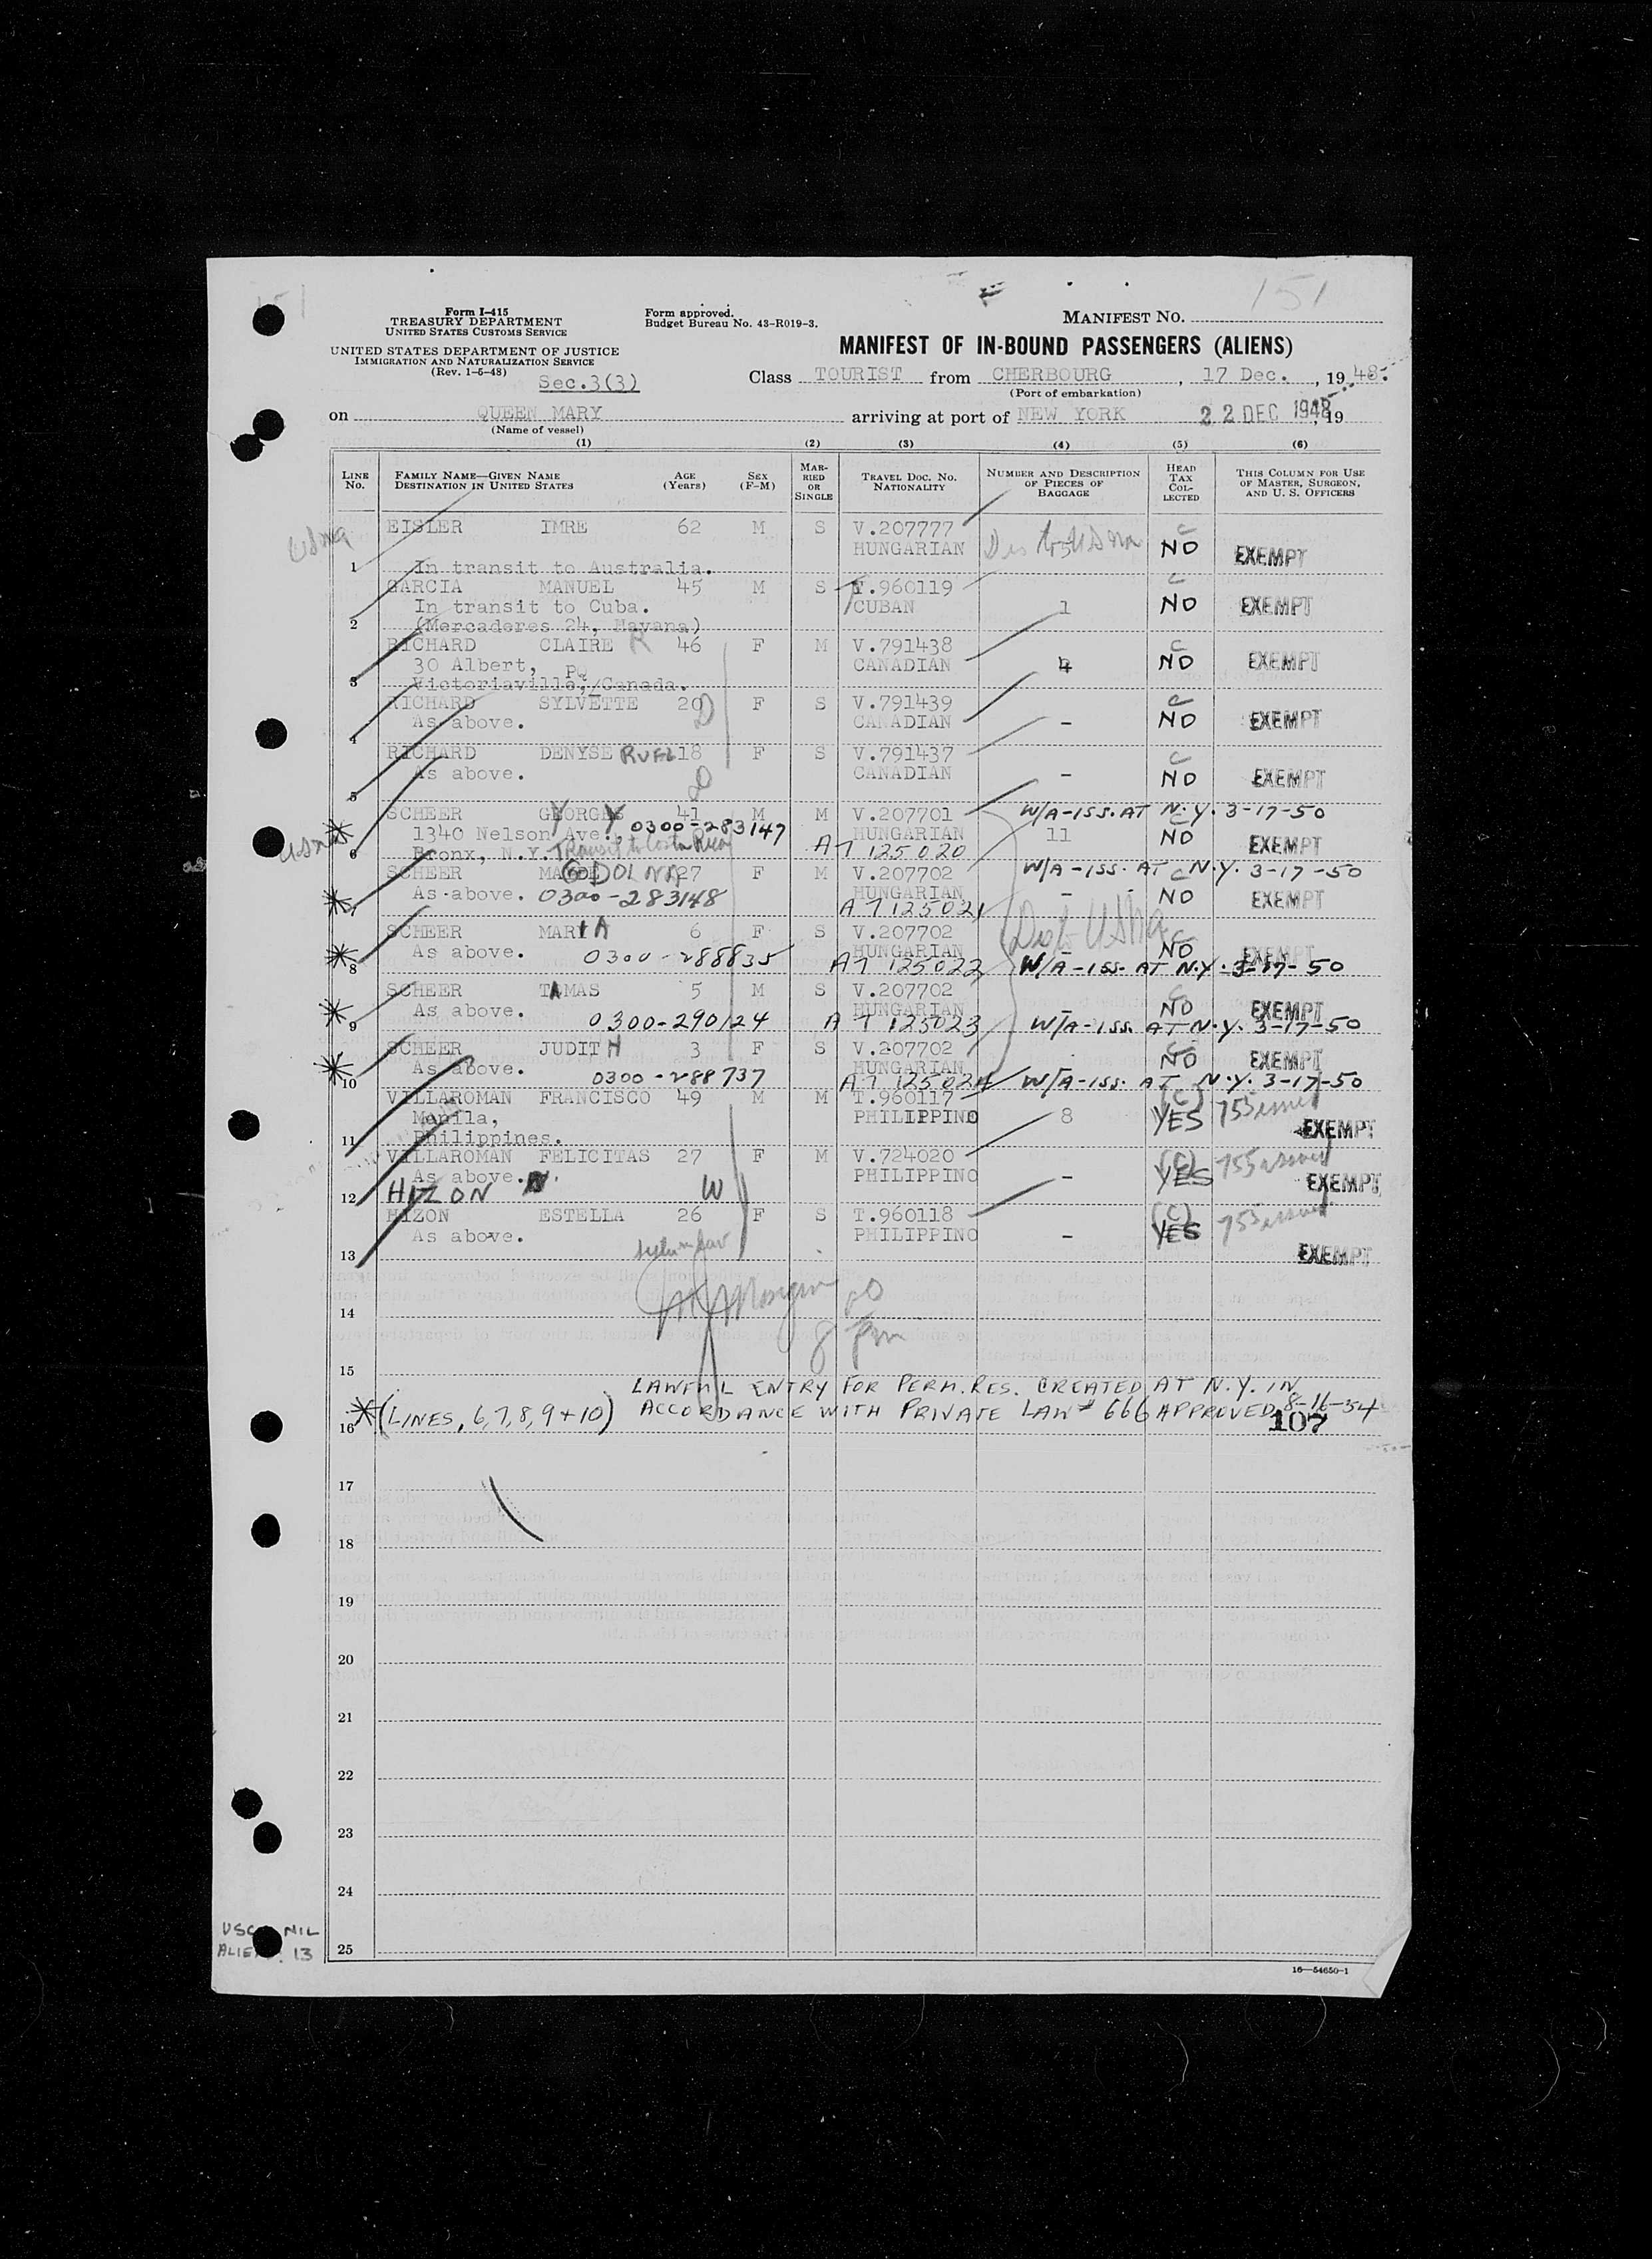 151
Form I-415
TREASURY DEPARTMENT
UNITED STATES CUSTOMS SERVICE
Form approved.
Budget Bureau No. 43-R019-3.
MANIFEST NO.
UNITED STATES DEPARTMENT OF JUSTICE
IMMIGRATION AND NATURALIZATION SERVICE
(Rev. 1-5-48)
Sec.3(3)
MANIFEST OF IN-BOUND PASSENGERS (ALIENS)
Class TOURIST from CHERBOURG, 17 Dec., 1948.
(Port of embarkation)
on QUEEN MARY arriving at port of NEW YORK 22 DEC 1948, 19
(Name of vessel)
(1) (2) (3) (4) (5) (6)
LINE No. FAMILY NAME—GIVEN NAME DESTINATION IN UNITED STATES AGE (Years) SEX (F-M) MARRIED OR SINGLE TRAVEL DOC. NO. NATIONALITY NUMBER AND DESCRIPTION OF PIECES OF BAGGAGE HEAD TAX COLLECTED THIS COLUMN FOR USE OF MASTER, SURGEON, AND U. S. OFFICERS
EISLER IMRE 62 M S V.207777 C
HUNGARIAN NO EXEMPT
1 In transit to Australia.
GARCIA MANUEL 45 M S T.960119 C
In transit to Cuba. CUBAN 1 NO EXEMPT
2 (Mercaderes 24, Havana)
RICHARD CLAIRE R 46 F M V.791438 C
30 Albert, PQ CANADIAN 4 NO EXEMPT
3 Victoriaville,/Canada.
RICHARD SYLVETTE 20 D F S V.791439 C
As above. CANADIAN - NO EXEMPT
4
RICHARD DENYSE 18 F S V.791437 C
As above. D CANADIAN - NO EXEMPT
5
SCHEER GYORGY 41 M M V.207701 W/A-ISS. AT N.Y. 3-17-50
1340 Nelson Ave., 0300-283147 HUNGARIAN 11 C NO EXEMPT
6 Bronx, N.Y. Transit to Costa Rica A7 125020
SCHEER 27 F M V.207702 W/A-ISS. AT N.Y. 3-17-50
As above. 0300-283148 HUNGARIAN - C NO EXEMPT
7 A7 125021
SCHEER MARIA 6 F S V.207702 C
As above. 0300-288835 HUNGARIAN - NO EXEMPT
8 A7 125022 W/A-ISS. AT N.Y. 3-17-50
SCHEER TAMAS 5 M S V.207702 C
As above. HUNGARIAN - NO EXEMPT
9 0300-290124 A7 125023 W/A-ISS. AT N.Y. 3-17-50
SCHEER JUDITH 3 F S V.207702 C
As above. HUNGARIAN - NO EXEMPT
10 0300-288737 A7 125024 W/A-ISS. AT N.Y. 3-17-50
VILLAROMAN FRANCISCO 49 M M T.960117 (C)
Manila, PHILIPPINO 8 YES 755 issued
11 Philippines. EXEMPT
VILLAROMAN FELICITAS 27 F M V.724020 (C) 755 issued
As above. PHILIPPINO - YES EXEMPT
12 HIZON W
HIZON ESTELLA 26 F S T.960118 (C) 755 issued
As above. PHILIPPINO - YES
13 EXEMPT
14
8 pm
15
LAWFUL ENTRY FOR PERM. RES. CREATED AT N.Y. IN
16 *(LINES, 6,7,8,9+10) ACCORDANCE WITH PRIVATE LAW # 666 APPROVED 8-16-54
107
17
18
19
20
21
22
23
24
USC NIL
ALIEN 13
25
16—54650-1